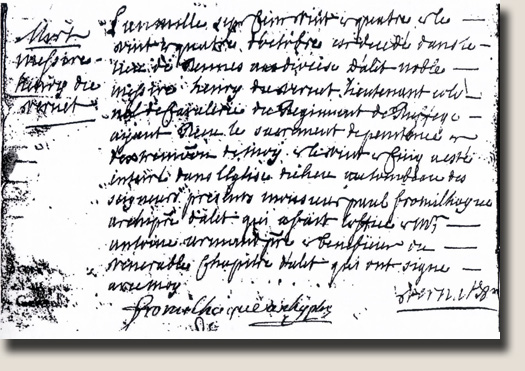 Mort
messire
henry du
vernet
L'an mille sept cens vint & quatre & le
vint & quatre doctobre est decedé dans le
lieu de diocèse dalet noble
messire henry du vernet lieutenant colo
nel de cavalerie du Regiment de
ayant Receu le sacrement de penitence &
dextremonction de moy & le vint & cinq a esté
enterré dans l'eglise dudit lieu au tombeau des
seigneurs presents monsieur paul fromilhague
archiprê dalet qui a fait l'office & Mr
antoine armand prê & beneficier du
venerable Chapitre dalet qui ont signe
avec moy
fromilhague archiprê